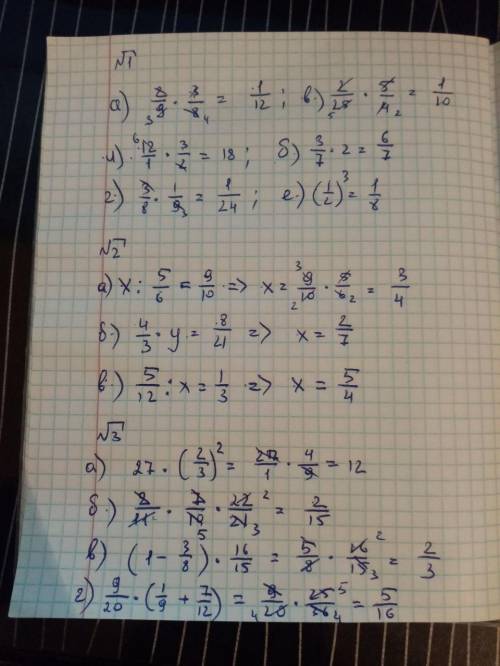 √1
а) 8/9 · 3/8 = 1/12; в) 2/25 · 5/4 = 1/10
д) 12/1 · 3/2 = 18; б) 3/7 · 2 = 6/7
г) 3/8 · 1/9 = 1/24; е) (1/2)³ = 1/8
√2
а) x : 5/6 = 9/10 => x = 9/10 · 5/6 = 3/4
б) 4/3 · y = 8/21 => x = 2/7
в) 5/12 : x = 1/3 => x = 5/4
√3
а) 27 · (2/3)² = 27/1 · 4/9 = 12
б) 8/11 · 7/10 · 22/21 = 2/15
в) (1 - 3/8) · 16/15 = 5/8 · 16/15 = 2/3
г) 9/20 · (1/9 + 7/12) = 9/20 · 25/36 = 5/16